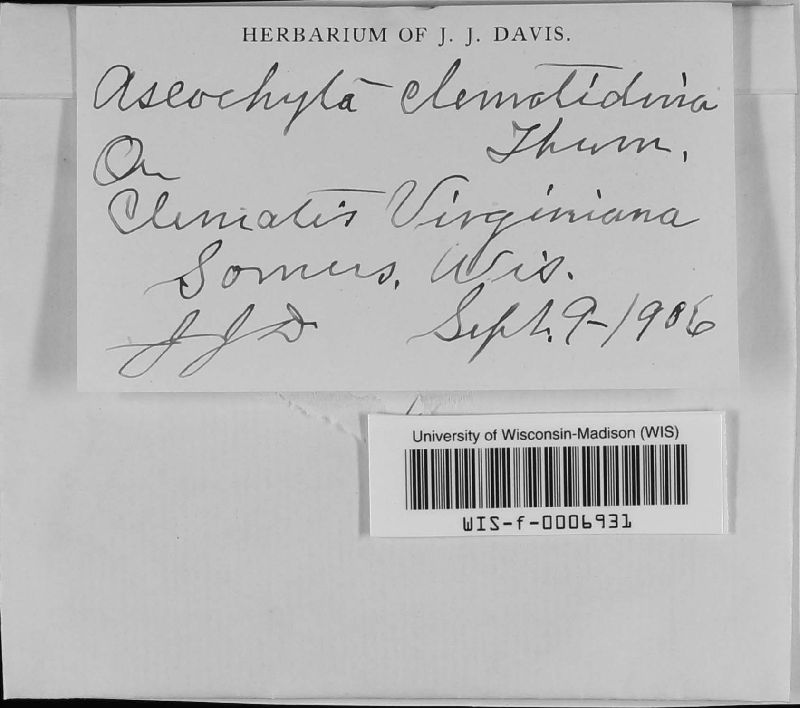 HERBARIUM OF J. J. DAVIS.
Ascochyta clematidina
Thum.
On
Clematis Virginiana
Somers, Wis.
JJD Sept. 9-1906
University of Wisconsin-Madison (WIS)
WIS-f-0006931